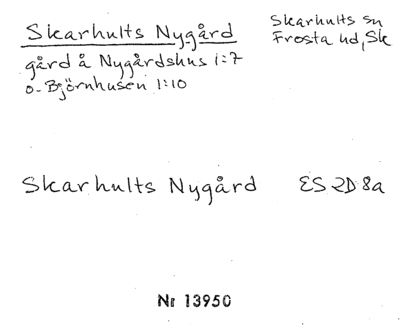 Skarhults Nygård
Skarhults sn
Frosta hd, Sk
gård å Nygårdshus 1:7
o. Björnhusen 1:10
Skarhults Nygård ES 2D 8a
Nr 13950